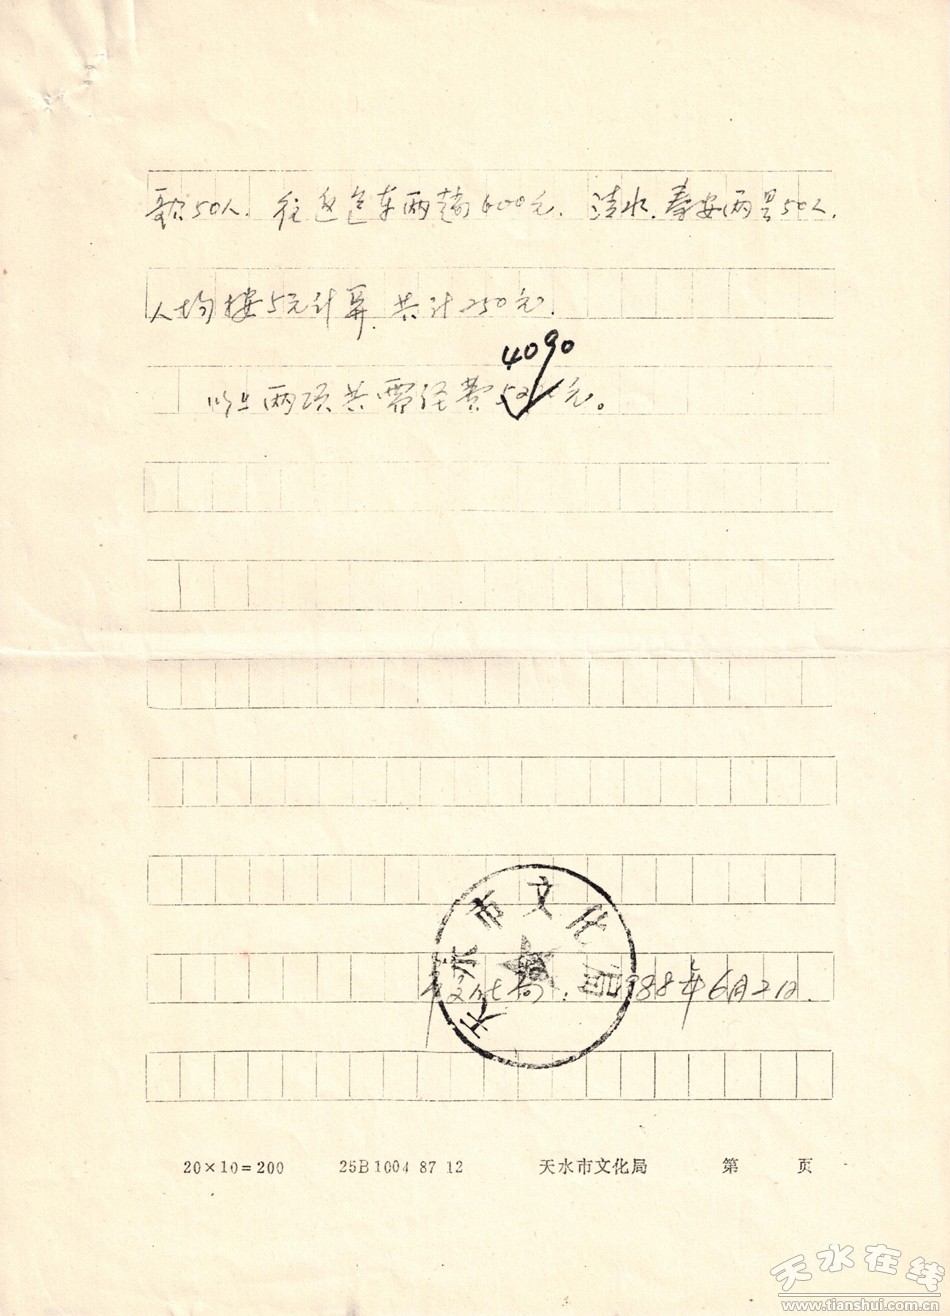 50人. 往返包车两趟600元. 清水.秦安两县50人.
人均按5元计算.共计250元.
4090
以上两项共需经费元。
天水市文化局
市文化局. 1988年6月2日.
20×10=200 25B1004 87 12 天水市文化局 第 页
天水在线
www.tianshui.com.cn